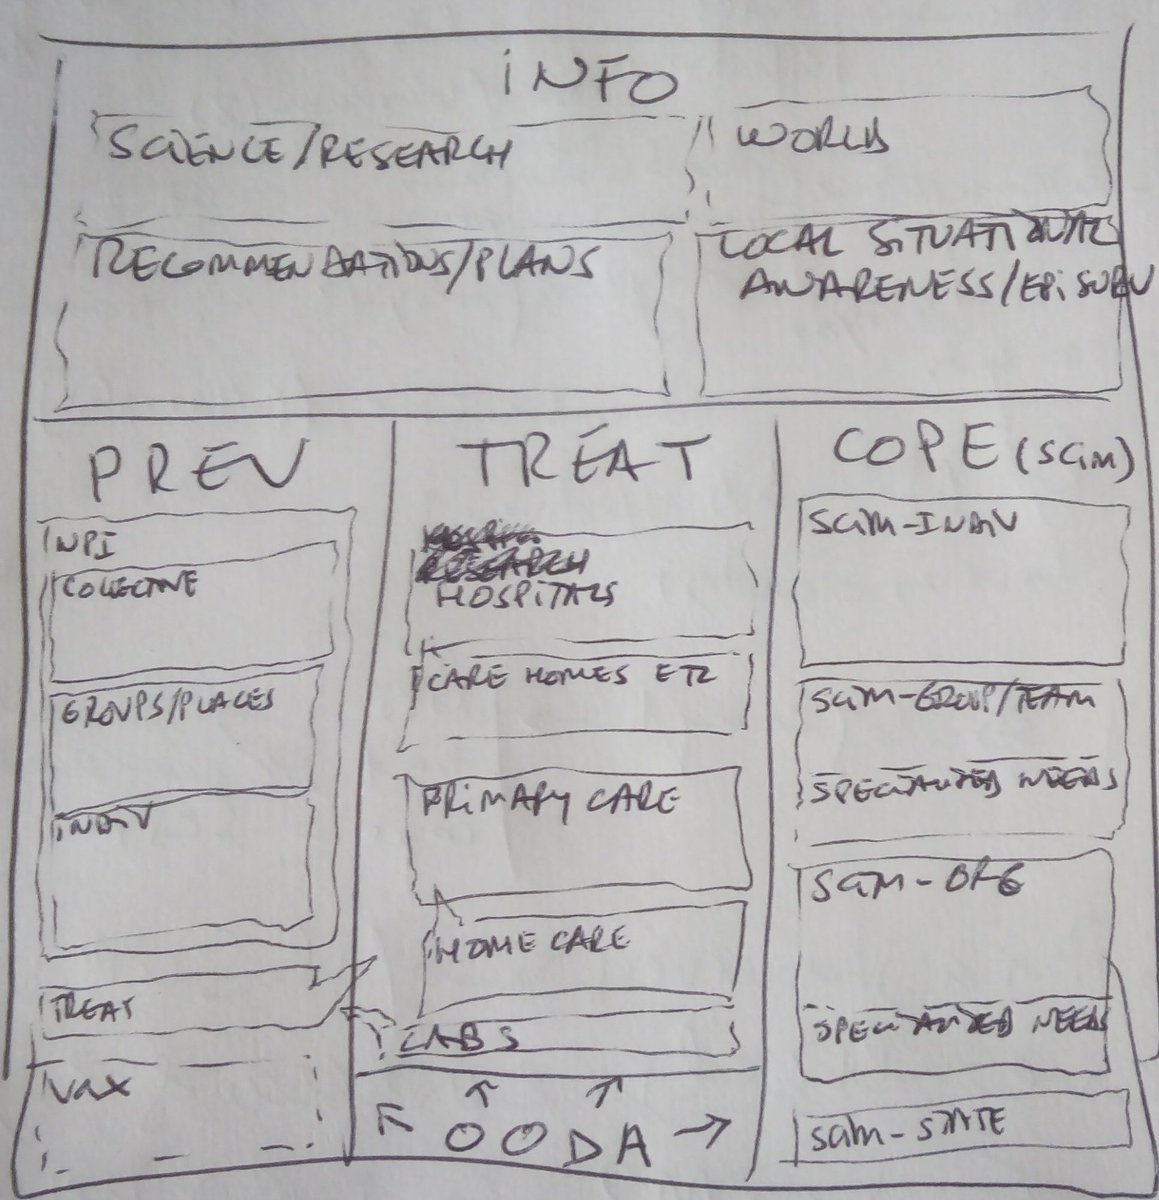 INFO
SCIENCE/RESEARCH
WORLD
RECOMMENDATIONS/PLANS
LOCAL SITUATIONAL
AWARENESS/EPI SURV
PREV
TREAT
COPE (SCIM)
NPI
COLECTIVE
GROUPS/PLACES
INDIV
TREAT
VAX
HOSPITALS
CARE HOMES ETC
PRIMARY CARE
HOME CARE
LABS
OODA
SCIM-INDIV
SCIM-GROUP/TEAM
SPECIALIZED NEEDS
SCIM-ORG
SPECIALIZED NEEDS
SCIM-STATE